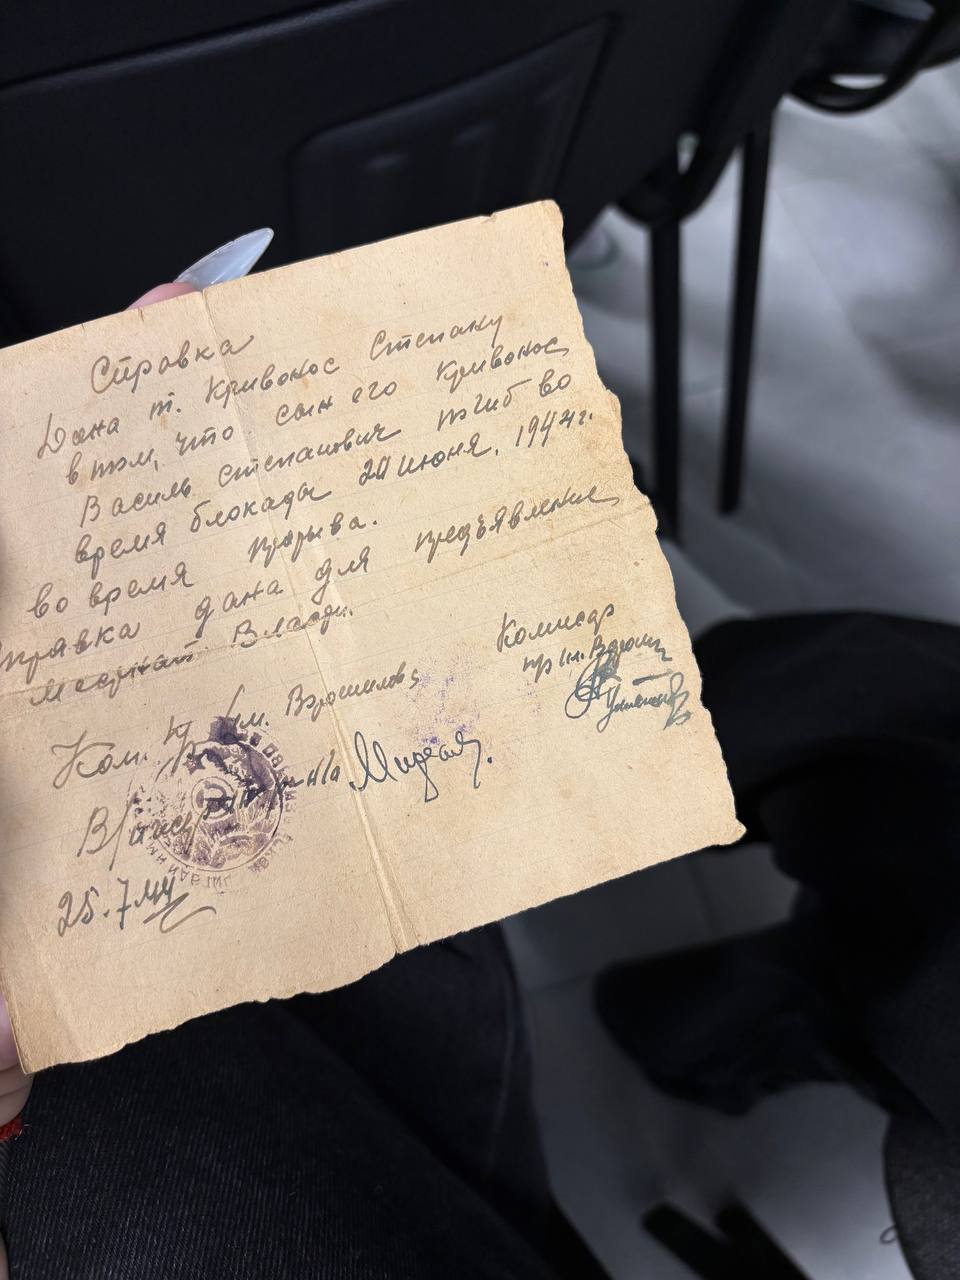 Справка
Дана т. Кривонос Степану
в том, что сын его Кривонос
Василь Степанович погиб во
время блокады 20 июня. 1944 г.
во время прорыва.
справка дана для предъявление
местной Власти.
Комисар
Ком. им. Ворошилова
пр им.
25.7.44